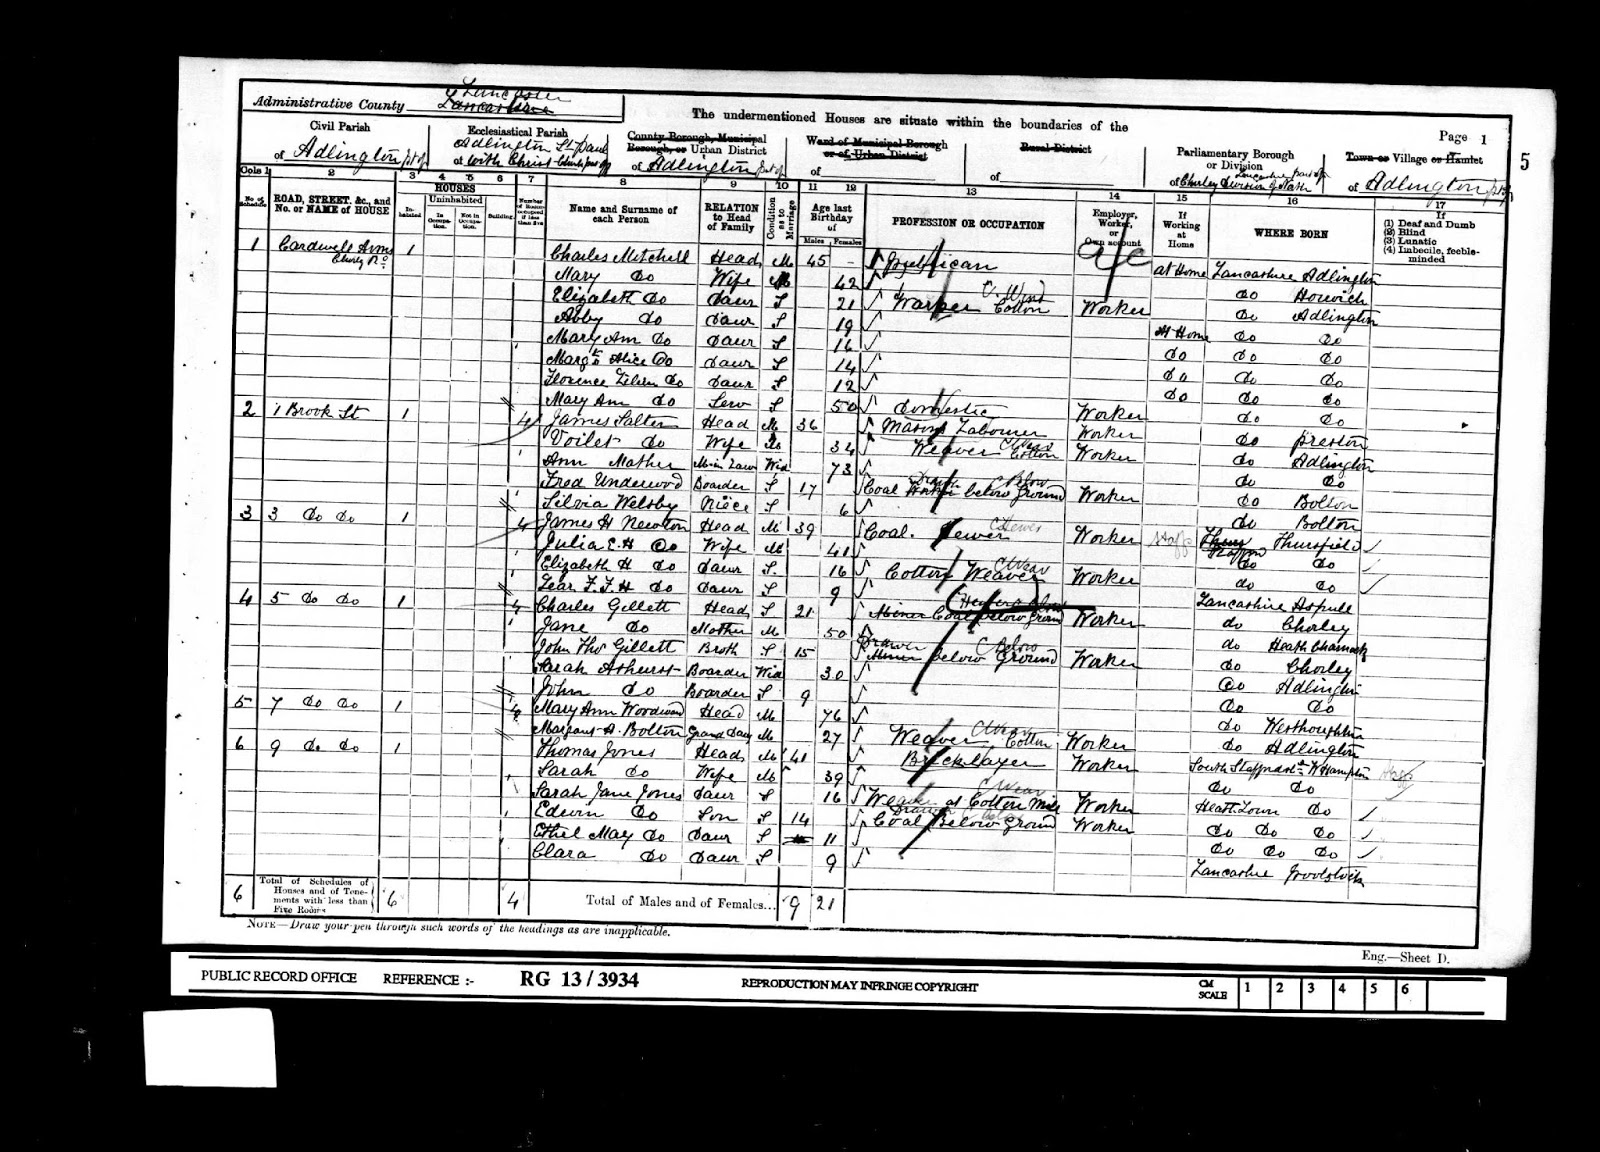 Administrative County Lancaster Lancashire
The undermentioned Houses are situate within the boundaries of the
Page 1
5
Civil Parish
of Adlington pt of
Ecclesiastical Parish
Adlington St Paul
of with Christ Church pt of
County Borough, Municipal
Borough, or Urban District
of Adlington pt of
Ward of Municipal Borough
or of Urban District
of
Rural District
of
Parliamentary Borough
or Division
of Chorley Division of Lancashire part of
Town or Village or Hamlet
of Adlington pt of
Cols 1 2 3 4 5 6 7 8 9 10 11 12 13 14 15 16 17
No. of Schedule
ROAD, STREET, &c., and No. or NAME of HOUSE
HOUSES
Inhabited
Uninhabited
In Occupation.
Not in Occupation.
Building.
Number of Rooms occupied if less than five
Name and Surname of each Person
RELATION to Head of Family
Condition as to Marriage
Age last Birthday of
Males Females
PROFESSION OR OCCUPATION
Employer, Worker, or Own account
If Working at Home
WHERE BORN
If
(1) Deaf and Dumb
(2) Blind
(3) Lunatic
(4) Imbecile, feeble-minded
1 Cardwell Arms 1 Charles Mitchell Head M 45 – Publican a/c at Home Lancashire Adlington
Chorley Rd
Mary Do Wife M 42 Do Horwich
Elizabeth Do Daur S 21 Warper Cotton C. Wind Worker Do Adlington
Abby Do Daur S 19 At Home Do Do
Mary Ann Do Daur S 16 Do Do Do
Margt Alice Do Daur S 14 Do Do Do
Florence Do Daur S 12 Do Do Do
Mary Ann Do Serv S 50 Domestic Worker Do Do
2 1 Brook St 1 4 James Salter Head M 36 Masons Labourer Worker Do Preston
Voilet Do Wife M 34 Weaver Cotton C Weav Worker Do Adlington
Ann Mather M-in Law Wid 73 Do Do
Fred Underwood Boarder S 17 Coal Worker below Ground Drawer C Below Worker Do Bolton
Silvia Welsby Niece S 6 Do Bolton
3 3 Do Do 1 4 James H Newton Head M 39 Coal Hewer C Hewer Worker Staffs Thursfield
Julia E. H Do Wife M 41 Do Do
Elizabeth H Do Daur S. 16 Cotton Weaver C Weav Worker Do Do
Lear F. F. H Do Daur S 9
4 5 Do Do 1 4 Charles Gillett Head S 21 Miner Coal below Ground Hewer C Below Worker Lancashire Aspull
Jane Do Mother M 50 Do Chorley
John Thos Gillett Broth S 15 Miner below Ground Drawer C Below Worker Do Heath Charnock
Sarah Ashurst Boarder Wid 30 Do Chorley
John Do Boarder S 9 Do Adlington
5 7 Do Do 1 4 Mary Ann Woodward Head M 76 Do Do
Margaret A. Bolton Grand Daur M 27 Weaver Cotton C Weav Worker Do Westhoughton
6 9 Do Do 1 Thomas Jones Head M 41 Bricklayer Worker Do Adlington
Sarah Do Wife M 39 South Staffordsh W Hampton Staffs
Sarah Jane Jones Daur S 16 Weaver at Cotton Mill C Weav Worker Do Do
Edwin Do Son S 14 Coal Below Ground Drawer C Below Worker Heath Town Do
Ethel May Do Daur S 11 Do Do Do
Clara Do Daur S 9 Do Do Do
Lancashire
6 Total of Schedules of Houses and of Tenements with less than Five Rooms 6 4 Total of Males and of Females... 9 21
NOTE—Draw your pen through such words of the headings as are inapplicable.
Eng.—Sheet D.
PUBLIC RECORD OFFICE REFERENCE :- RG 13 / 3934 REPRODUCTION MAY INFRINGE COPYRIGHT CM SCALE 1 2 3 4 5 6